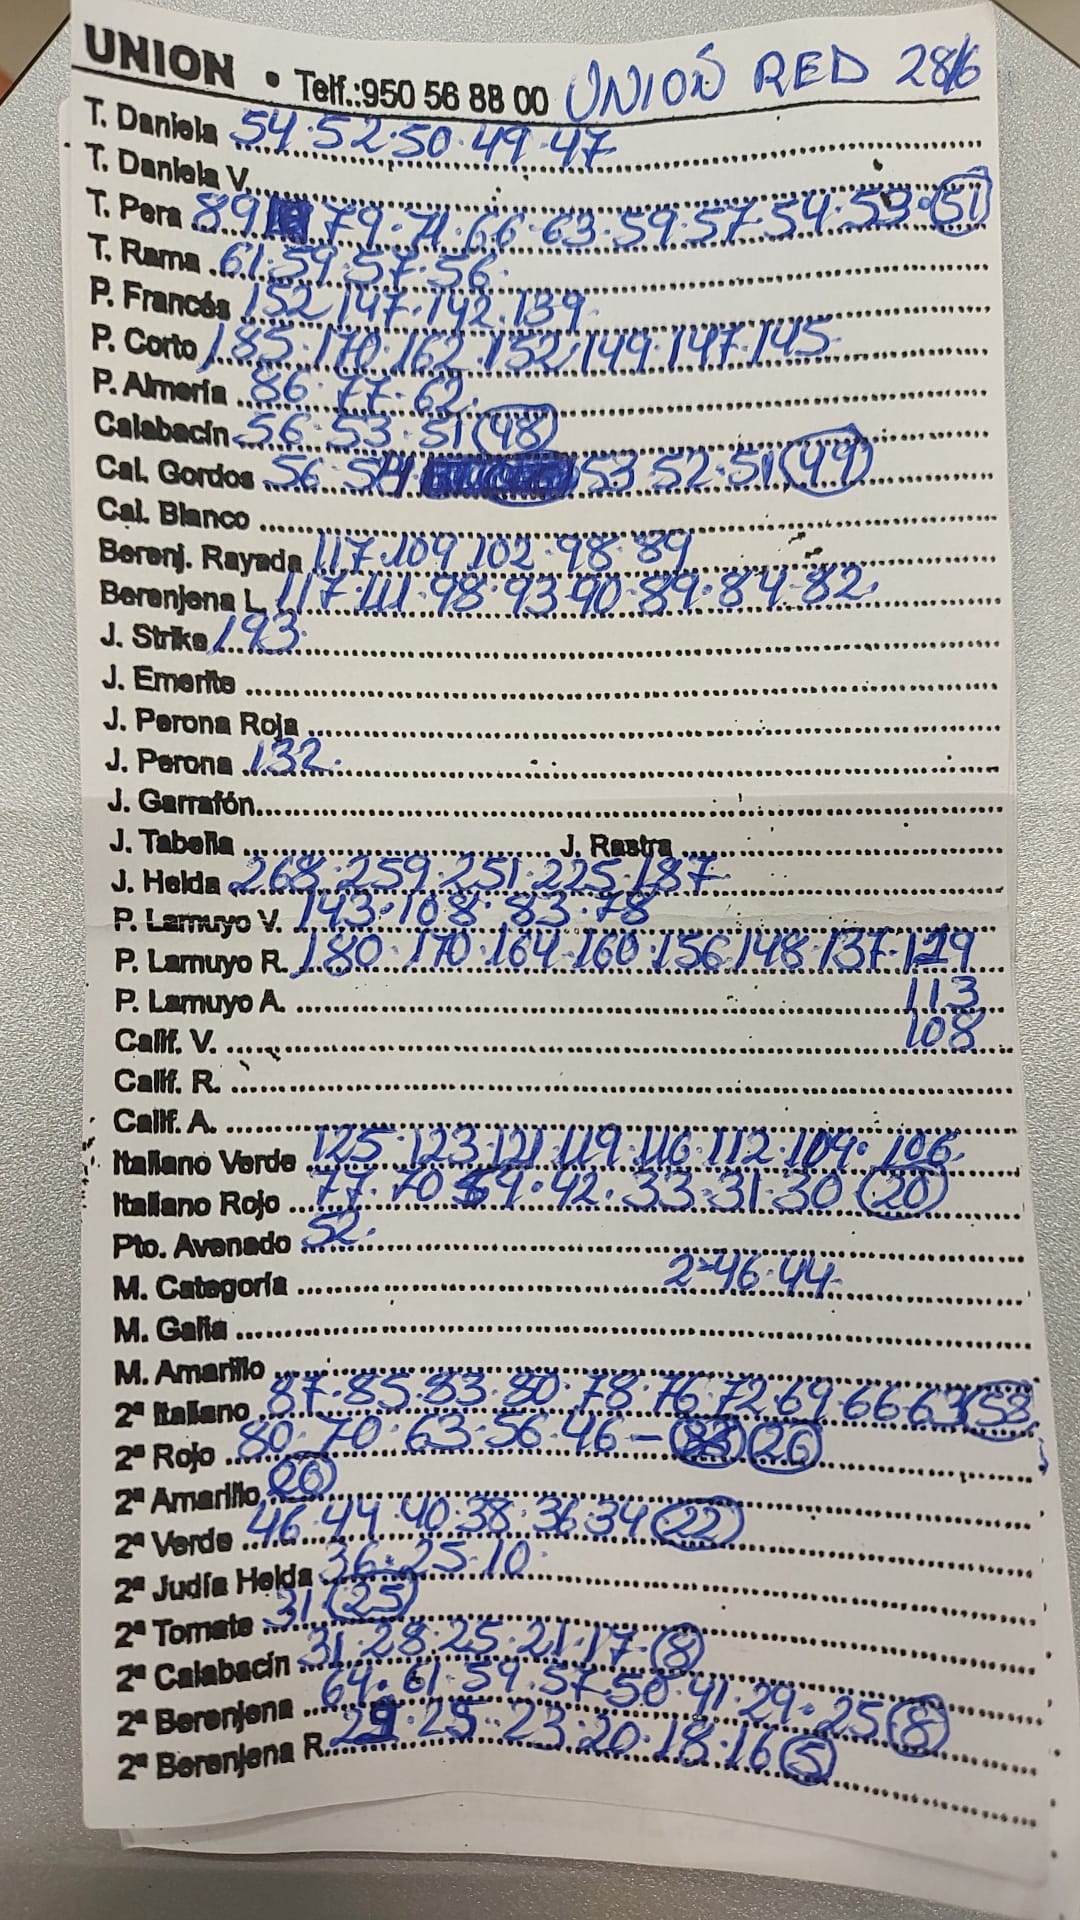 UNION • Telf.:950 56 88 00 UNION RED 28/6
T. Daniela 54.52.50.49.47
T. Daniela V.
T. Pera 89 79.71.66.63.59.57.54.53.(51)
T. Rama 61.59.57.56.
P. Francés 152.147.142.139.
P. Corto 185.170.162.152.149.147.145
P. Almería 86.77.62.
Calabacín 56.53.51(48)
Cal. Gordos 56.54 53.52.51(49)
Cal. Blanco
Berenj. Rayada 117.109.102.98.89
Berenjena L. 117.111.98.93.90.89.84.82.
J. Strike 193.
J. Emerite
J. Perona Roja
J. Perona 132.
J. Garrafón
J. Tabella J. Rastra
J. Helda 268.259.251.225.187
P. Lamuyo V. 143.108.83.78
P. Lamuyo R. 180.170.164.160.156.148.137.129
P. Lamuyo A. 113
Calif. V. 108
Calif. R.
Calif. A.
Italiano Verde 125.123.121.119.116.112.109.106.
Italiano Rojo 77.70 59.42.33.31.30 (20)
Pto. Avenado 52.
M. Categoría 2-46.44
M. Galia
M. Amarillo
2ª Italiano 87.85.83.80.78.76.72.69.66.63(58)
2ª Rojo 80.70.63.56.46 – (26)
2ª Amarillo (20)
2ª Verde 46.44.40.38.36.34 (22)
2ª Judía Helda 36.25.10.
2ª Tomate 31.(25)
2ª Calabacín 31.28.25.21.17.(8)
2ª Berenjena 64.61.59.57.50.41.29.25(8)
2ª Berenjena R. 29.25.23.20.18.16(5)